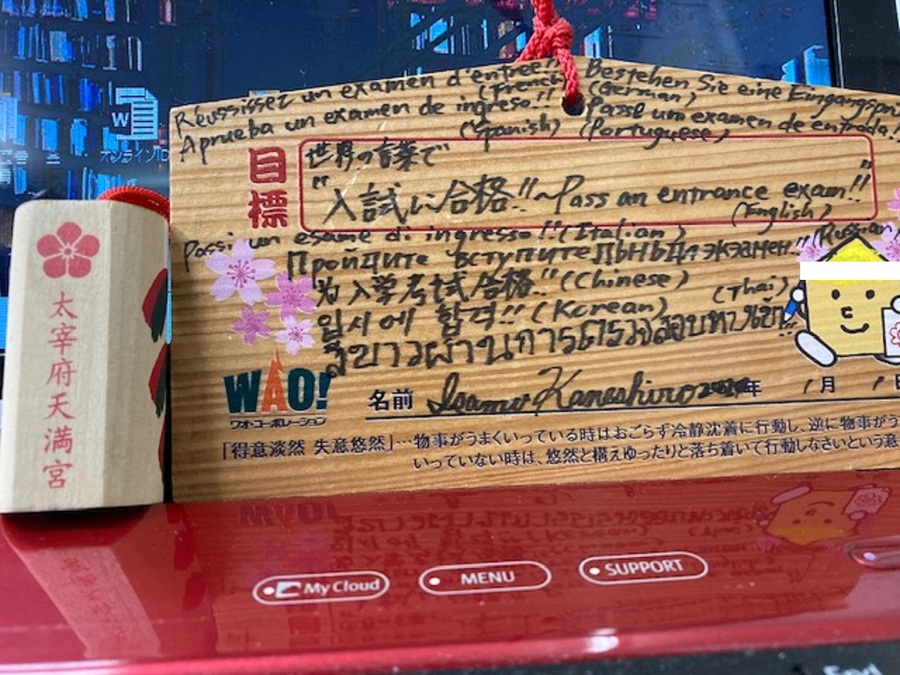 Réussissez un examen d'entrée!! (French)
Bestehen Sie eine (German)
Aprueba un examen de ingreso!! (Spanish)
Passe um examen de entrada!! (Portuguese)
目標
世界の言葉で
"入試に合格!!~Pass an entrance exam!!"
(English)
Passi un esame di ingresso!! (Italian)
вступите (Russian)
为入学考试合格!! (Chinese)
입시에 합격!! (Korean)
(Thai)
WAO!
ワオ・コーポレーション
名前 Isamu Kaneshiro 年 1月 1日
「得意淡然 失意悠然」…物事がうまくいっている時はおごらず冷静沈着に行動し、逆に物事がう
いっていない時は、悠然と構えゆったりと落ち着いて行動しなさいという意
太宰府天満宮
W
オンライン
My Cloud
MENU
SUPPORT
End